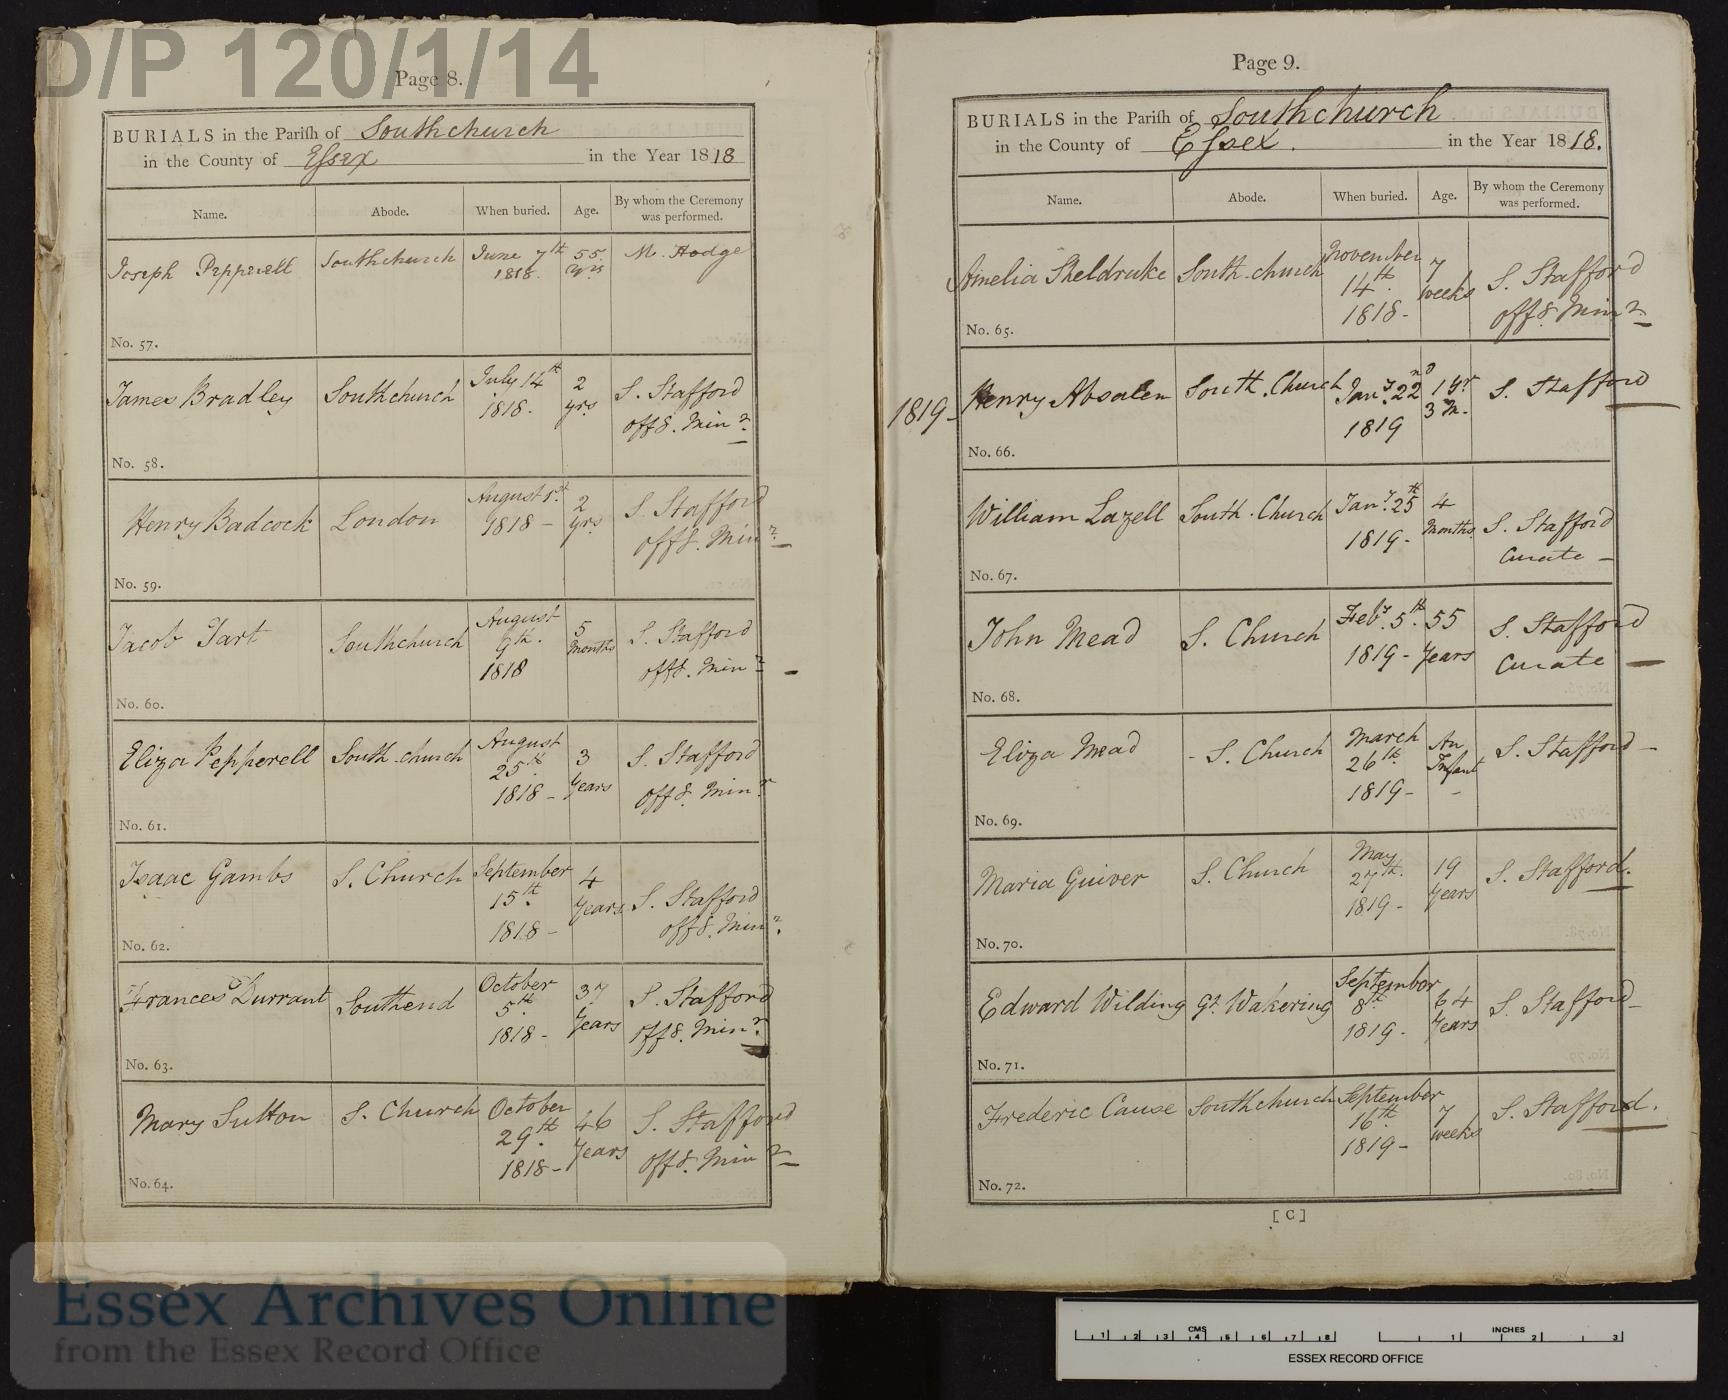 D/P 120/1/14
Page 8.
BURIALS in the Pariſh of Southchurch
in the County of Eſsex in the Year 1818
Name. Abode. When buried. Age. By whom the Ceremony was performed.
Joseph Pepperell Southchurch June 7th 1818. 55. yrs M. Hodge
No. 57.
James Bradley Southchurch July 14th 1818. 2 yrs S. Stafford offg. Minr.
No. 58.
Henry Badcock London August 1st. 1818 - 2 yrs. S. Stafford offg. Minr.
No. 59.
Jacob Tart Southchurch August 9th. 1818 5 Months S. Stafford offg. Minr
No. 60.
Eliza Pepperell South church August 25th. 1818 - 3 Years S. Stafford offg. Minr.
No. 61.
Isaac Gambs S. Church September 15th. 1818 - 4 Years S. Stafford offg. Minr.
No. 62.
Frances Durrant Southend October 5th. 1818 - 37 Years S. Stafford offg. Minr.
No. 63.
Mary Sutton S. Church October 29th. 1818 - 46 Years S. Stafford offg. Minr
No. 64.
Page 9.
BURIALS in the Pariſh of Southchurch
in the County of Eſsex. in the Year 1818.
Name. Abode. When buried. Age. By whom the Ceremony was performed.
Amelia Sheldrake South-church November 14th. 1818 - 7 weeks S. Stafford offg. Minr.
No. 65.
1819 - Henry Absalen South. Church Jany. 22nd 1819 1 yr 3 M. S. Stafford
No. 66.
William Lazell South. Church Jany. 25th 1819 - 4 Months. S. Stafford Curate -
No. 67.
John Mead S. Church Feby. 5th. 1819 - 55 Years S. Stafford Curate -
No. 68.
Eliza Mead - S. Church March 26th. 1819 - An Infant - S. Stafford -
No. 69.
Maria Guiver S. Church May 27th. 1819 - 19 Years S. Stafford.
No. 70.
Edward Wilding Gt. Wakering September 8th 1819 - 64 Years S. Stafford -
No. 71.
Frederic Cause Southchurch September 16th. 1819 - 7 weeks S. Stafford.
No. 72.
[ C ]
Essex Archives Online
from the Essex Record Office
CMS
1 2 3 4 5 6 7 8
INCHES
1 2 3
ESSEX RECORD OFFICE